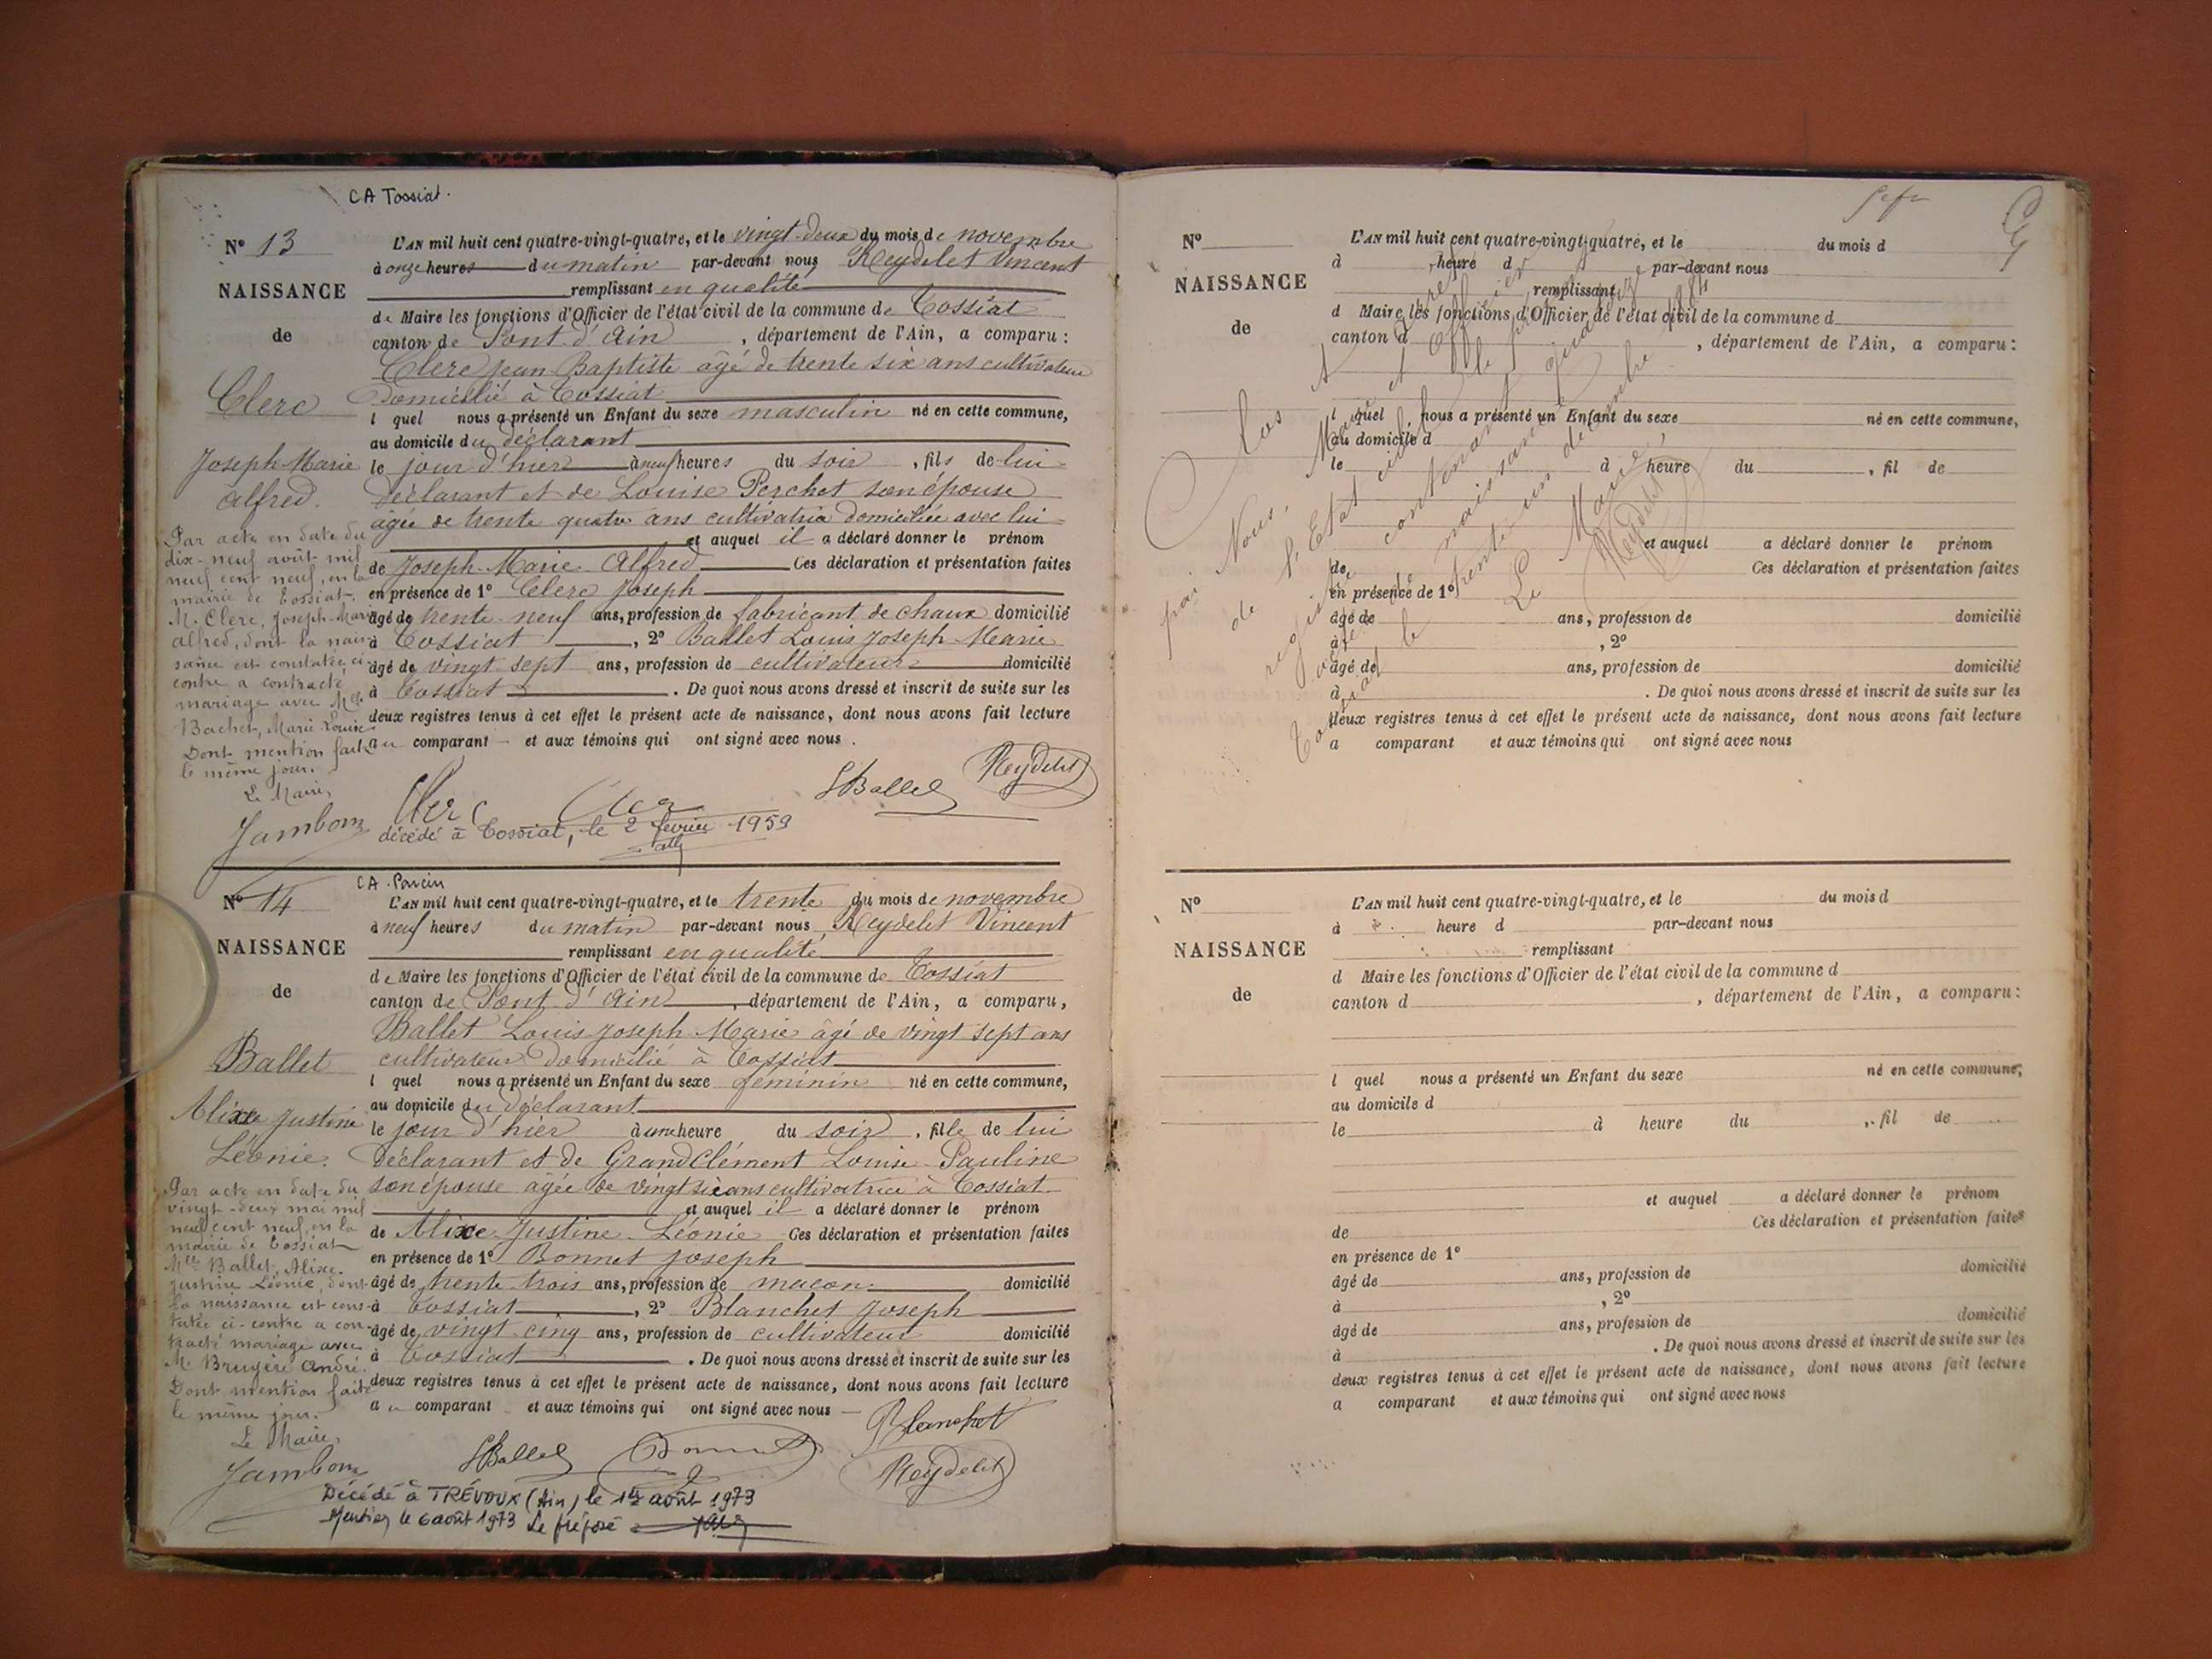 CA Tossiat.
N° 13
NAISSANCE
de
Clerc
Joseph Marie
Alfred.
Par acte en date du
dix-neuf août mil
neuf cent neuf, en la
mairie de Tossiat.
M. Clerc, Joseph-Marie
Alfred, dont la nais-
sance est constatée ci-
contre a contracté
mariage avec Mlle
Bachet, Marie Louise
Dont mention faite
le même jour.
Le Maire,
Jambon
L'AN mil huit cent quatre-vingt-quatre, et le vingt-deux du mois de novembre
à onze heures du matin par-devant nous Reydelet Vincent
remplissant en qualité
de Maire les fonctions d'Officier de l'état civil de la commune de Tossiat
canton de Pont d'Ain, département de l'Ain, a comparu :
Clerc Jean Baptiste âgé de trente six ans cultivateur
domicilié à Tossiat
l quel nous a présenté un Enfant du sexe masculin né en cette commune,
au domicile du déclarant
le jour d'hier à neuf heures du soir, fils de lui
déclarant et de Louise Perchet son épouse
âgée de trente quatre ans cultivatrice domiciliée avec lui
et auquel il a déclaré donner le prénom
de Joseph Marie Alfred Ces déclaration et présentation faites
en présence de 1° Clerc Joseph
âgé de trente neuf ans, profession de fabricant de chaux domicilié
à Tossiat, 2° Ballet Louis Joseph Marie
âgé de vingt sept ans, profession de cultivateur domicilié
à Tossiat. De quoi nous avons dressé et inscrit de suite sur les
deux registres tenus à cet effet le présent acte de naissance, dont nous avons fait lecture
au comparant et aux témoins qui ont signé avec nous.
Clerc Clerc LBallet Reydelet
décédé à Tossiat, le 2 février 1959
CA Parcin
N° 14
NAISSANCE
de
Ballet
Alixe Justine
Léonie.
Par acte en date du
vingt-deux mai mil
neuf cent neuf, en la
mairie de Tossiat
Mlle Ballet, Alixe
Justine Léonie, dont
la naissance est cons-
tatée ci-contre a con-
tracté mariage avec
M. Bruyère André.
Dont mention faite
le même jour.
Le Maire,
Jambon
L'AN mil huit cent quatre-vingt-quatre, et le trente du mois de novembre
à neuf heures du matin par-devant nous, Reydelet Vincent
remplissant en qualité
de Maire les fonctions d'Officier de l'état civil de la commune de Tossiat
canton de Pont d'Ain, département de l'Ain, a comparu,
Ballet Louis Joseph Marie âgé de vingt sept ans
cultivateur domicilié à Tossiat
l quel nous a présenté un Enfant du sexe féminin né en cette commune,
au domicile du déclarant
le jour d'hier à une heure du soir, fille de lui
déclarant et de GrandClément Louise Pauline
son épouse âgée de vingt six ans cultivatrice à Tossiat
et auquel il a déclaré donner le prénom
de Alixe Justine Léonie Ces déclaration et présentation faites
en présence de 1° Bonnet Joseph
âgé de trente trois ans, profession de maçon domicilié
à Tossiat, 2° Blanchet Joseph
âgé de vingt cinq ans, profession de cultivateur domicilié
à Tossiat. De quoi nous avons dressé et inscrit de suite sur les
deux registres tenus à cet effet le présent acte de naissance, dont nous avons fait lecture
au comparant et aux témoins qui ont signé avec nous
LBallet Bonnet Blanchet
Reydelet
Décédé à TRÉVOUX (Ain) le 1er août 1973
Mention le 6 août 1973 Le préposé
N°
NAISSANCE
de
L'AN mil huit cent quatre-vingt-quatre, et le du mois d
à heure d par-devant nous
remplissant
d Maire les fonctions d'Officier de l'état civil de la commune d
canton d, département de l'Ain, a comparu :
l quel nous a présenté un Enfant du sexe né en cette commune,
au domicile d
le à heure du, fil de
et auquel a déclaré donner le prénom
de Ces déclaration et présentation faites
en présence de 1°
âgé de ans, profession de domicilié
à, 2°
âgé de ans, profession de domicilié
à. De quoi nous avons dressé et inscrit de suite sur les
deux registres tenus à cet effet le présent acte de naissance, dont nous avons fait lecture
a comparant et aux témoins qui ont signé avec nous
Clos et
par Nous, Maire et Officier
de l'Etat civil le présent
registre contenant quatorze
naissances
Tossiat le trente un décembre 1884
Le Maire,
Reydelet
N°
NAISSANCE
de
L'AN mil huit cent quatre-vingt-quatre, et le du mois d
à heure d par-devant nous
remplissant
d Maire les fonctions d'Officier de l'état civil de la commune d
canton d, département de l'Ain, a comparu :
l quel nous a présenté un Enfant du sexe né en cette commune,
au domicile d
le à heure du, fil de
et auquel a déclaré donner le prénom
de Ces déclaration et présentation faites
en présence de 1°
âgé de ans, profession de domicilié
à, 2°
âgé de ans, profession de domicilié
à. De quoi nous avons dressé et inscrit de suite sur les
deux registres tenus à cet effet le présent acte de naissance, dont nous avons fait lecture
a comparant et aux témoins qui ont signé avec nous